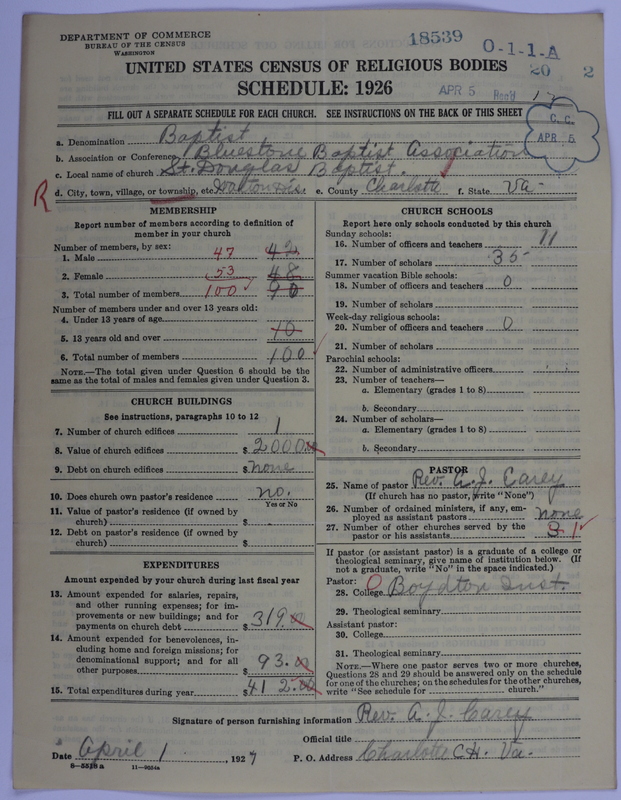 DEPARTMENT OF COMMERCE
BUREAU OF THE CENSUS
WASHINGTON
18539
O-1-1-A
20 2
UNITED STATES CENSUS OF RELIGIOUS BODIES
SCHEDULE: 1926
APR 5 Rec'd
FILL OUT A SEPARATE SCHEDULE FOR EACH CHURCH. SEE INSTRUCTIONS ON THE BACK OF THIS SHEET
C. C.
APR 5
a. Denomination Baptist
b. Association or Conference Bluestone Baptist Association
c. Local name of church St. Douglas Baptist.
R
d. City, town, village, or township, etc. Walton Dis. e. County Charlotte f. State Va-
MEMBERSHIP
Report number of members according to definition of
member in your church
Number of members, by sex:
1. Male 47 42
2. Female 53 48
3. Total number of members 100 90
Number of members under and over 13 years old:
4. Under 13 years of age
5. 13 years old and over 10
6. Total number of members 100
NOTE.—The total given under Question 6 should be the
same as the total of males and females given under Question 3.
CHURCH BUILDINGS
See instructions, paragraphs 10 to 12
7. Number of church edifices 1
8. Value of church edifices $ 2000.00
9. Debt on church edifices $ none
10. Does church own pastor's residence no.
Yes or No
11. Value of pastor's residence (if owned by
church) $
12. Debt on pastor's residence (if owned by
church) $
EXPENDITURES
Amount expended by your church during last fiscal year
13. Amount expended for salaries, repairs,
and other running expenses; for im-
provements or new buildings; and for
payments on church debt $ 319.00
14. Amount expended for benevolences, in-
cluding home and foreign missions; for
denominational support; and for all
other purposes $ 93.00
15. Total expenditures during year $ 412.00
CHURCH SCHOOLS
Report here only schools conducted by this church
Sunday schools:
16. Number of officers and teachers 11
17. Number of scholars 35
Summer vacation Bible schools:
18. Number of officers and teachers 0
19. Number of scholars
Week-day religious schools:
20. Number of officers and teachers 0
21. Number of scholars
Parochial schools:
22. Number of administrative officers
23. Number of teachers—
a. Elementary (grades 1 to 8)
b. Secondary
24. Number of scholars—
a. Elementary (grades 1 to 8)
b. Secondary
PASTOR
25. Name of pastor Rev. A. J. Carey
(If church has no pastor, write "None")
26. Number of ordained ministers, if any, em-
ployed as assistant pastors none
27. Number of other churches served by the
pastor or his assistants 3 1
If pastor (or assistant pastor) is a graduate of a college or
theological seminary, give name of institution below. (If
not a graduate, write "No" in the space indicated.)
Pastor:
28. College 0 Boydton Inst.
29. Theological seminary
Assistant pastor:
30. College
31. Theological seminary
NOTE.—Where one pastor serves two or more churches,
Questions 28 and 29 should be answered only on the schedule
for one of the churches; on the schedules for the other churches,
write "See schedule for church."
Signature of person furnishing information Rev. A. J. Carey
Official title
Date April 1, 1927 P. O. Address Charlotte C.H. Va.
8—5518a 11—9054a